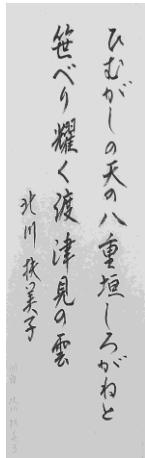 ひむがしの天の八重垣しろがねと
笹べり耀く渡津見の雲
北川 扶美子